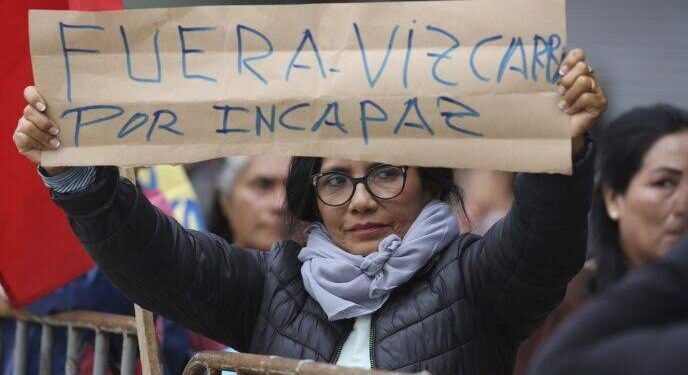 FUERA-VIZCARR
POR INCAPAZ